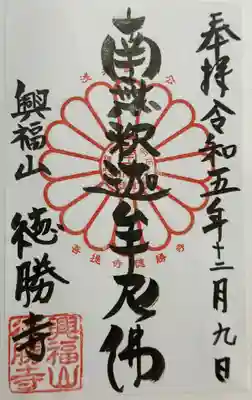 奉拝令和五年十二月九日
南無釈迦牟尼佛
興福山
徳勝寺
興福山
徳勝寺